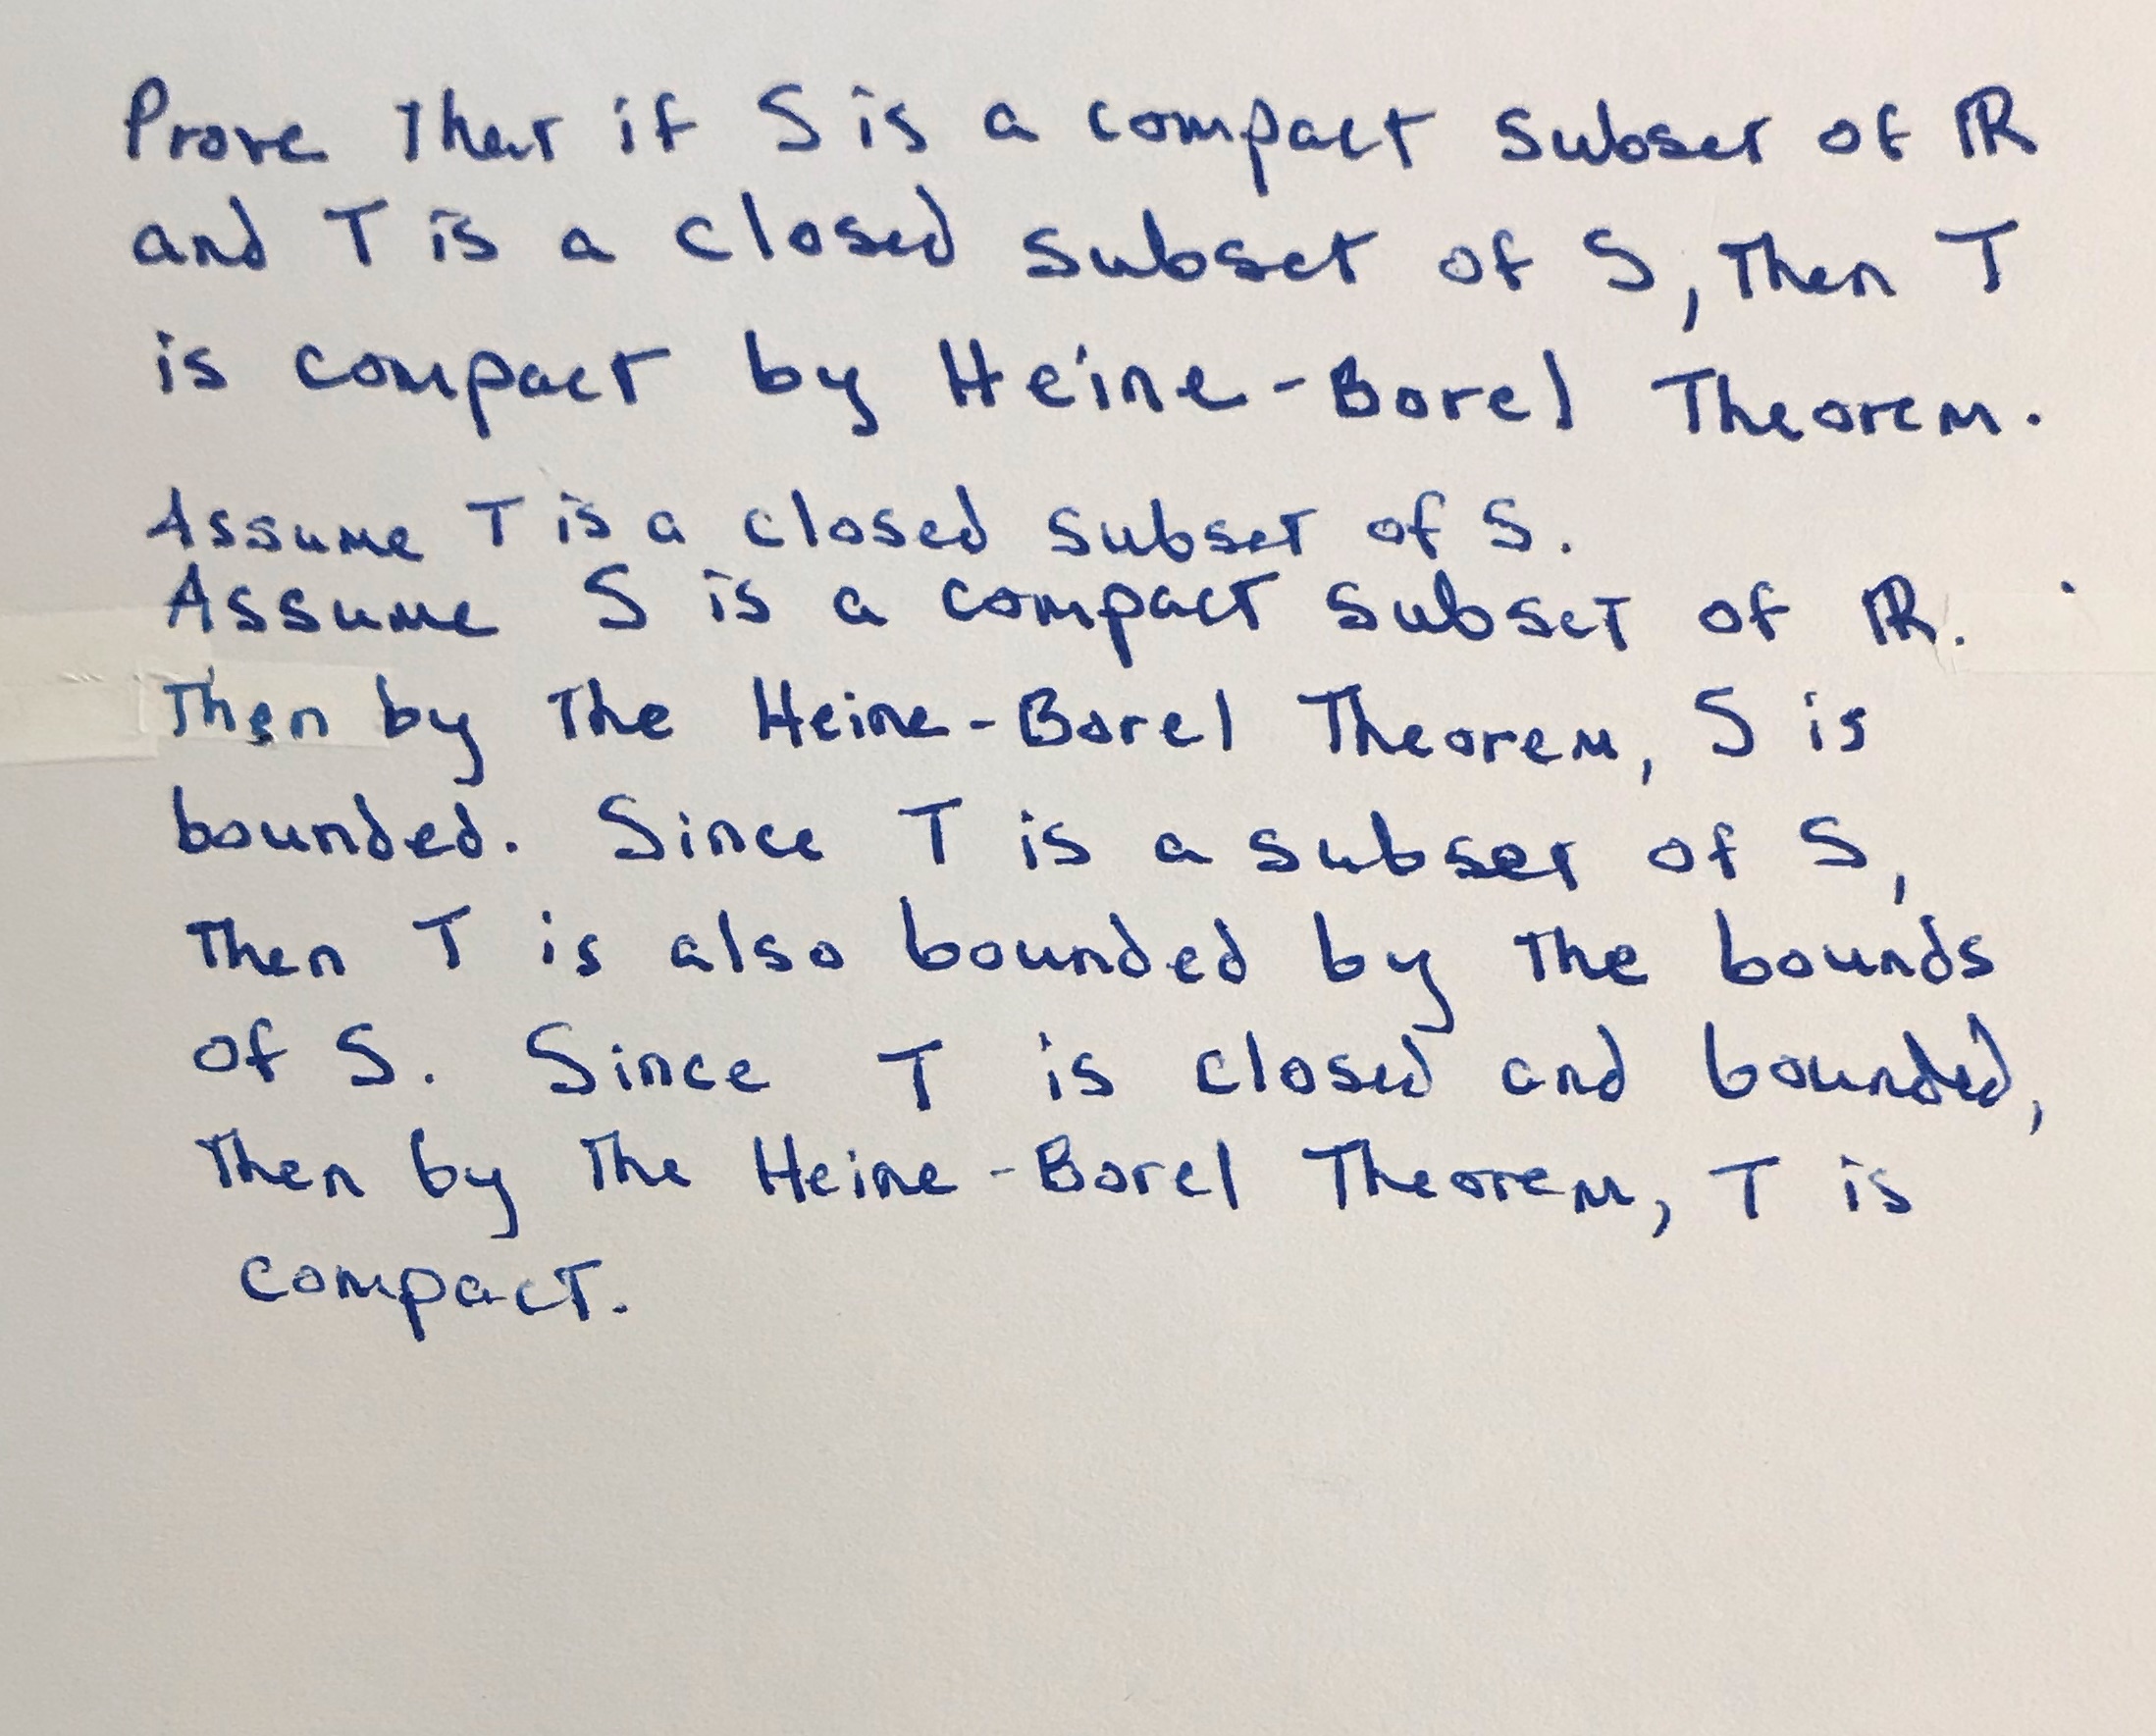 Prove that if S is a compact subset of ℝ
and T is a closed subset of S, then T
is compact by Heine-Borel Theorem.
Assume T is a closed subset of S.
Assume S is a compact subset of ℝ.
Then by the Heine-Borel Theorem, S is
bounded. Since T is a subset of S,
then T is also bounded by the bounds
of S. Since T is closed and bounded,
then by the Heine-Borel Theorem, T is
compact.